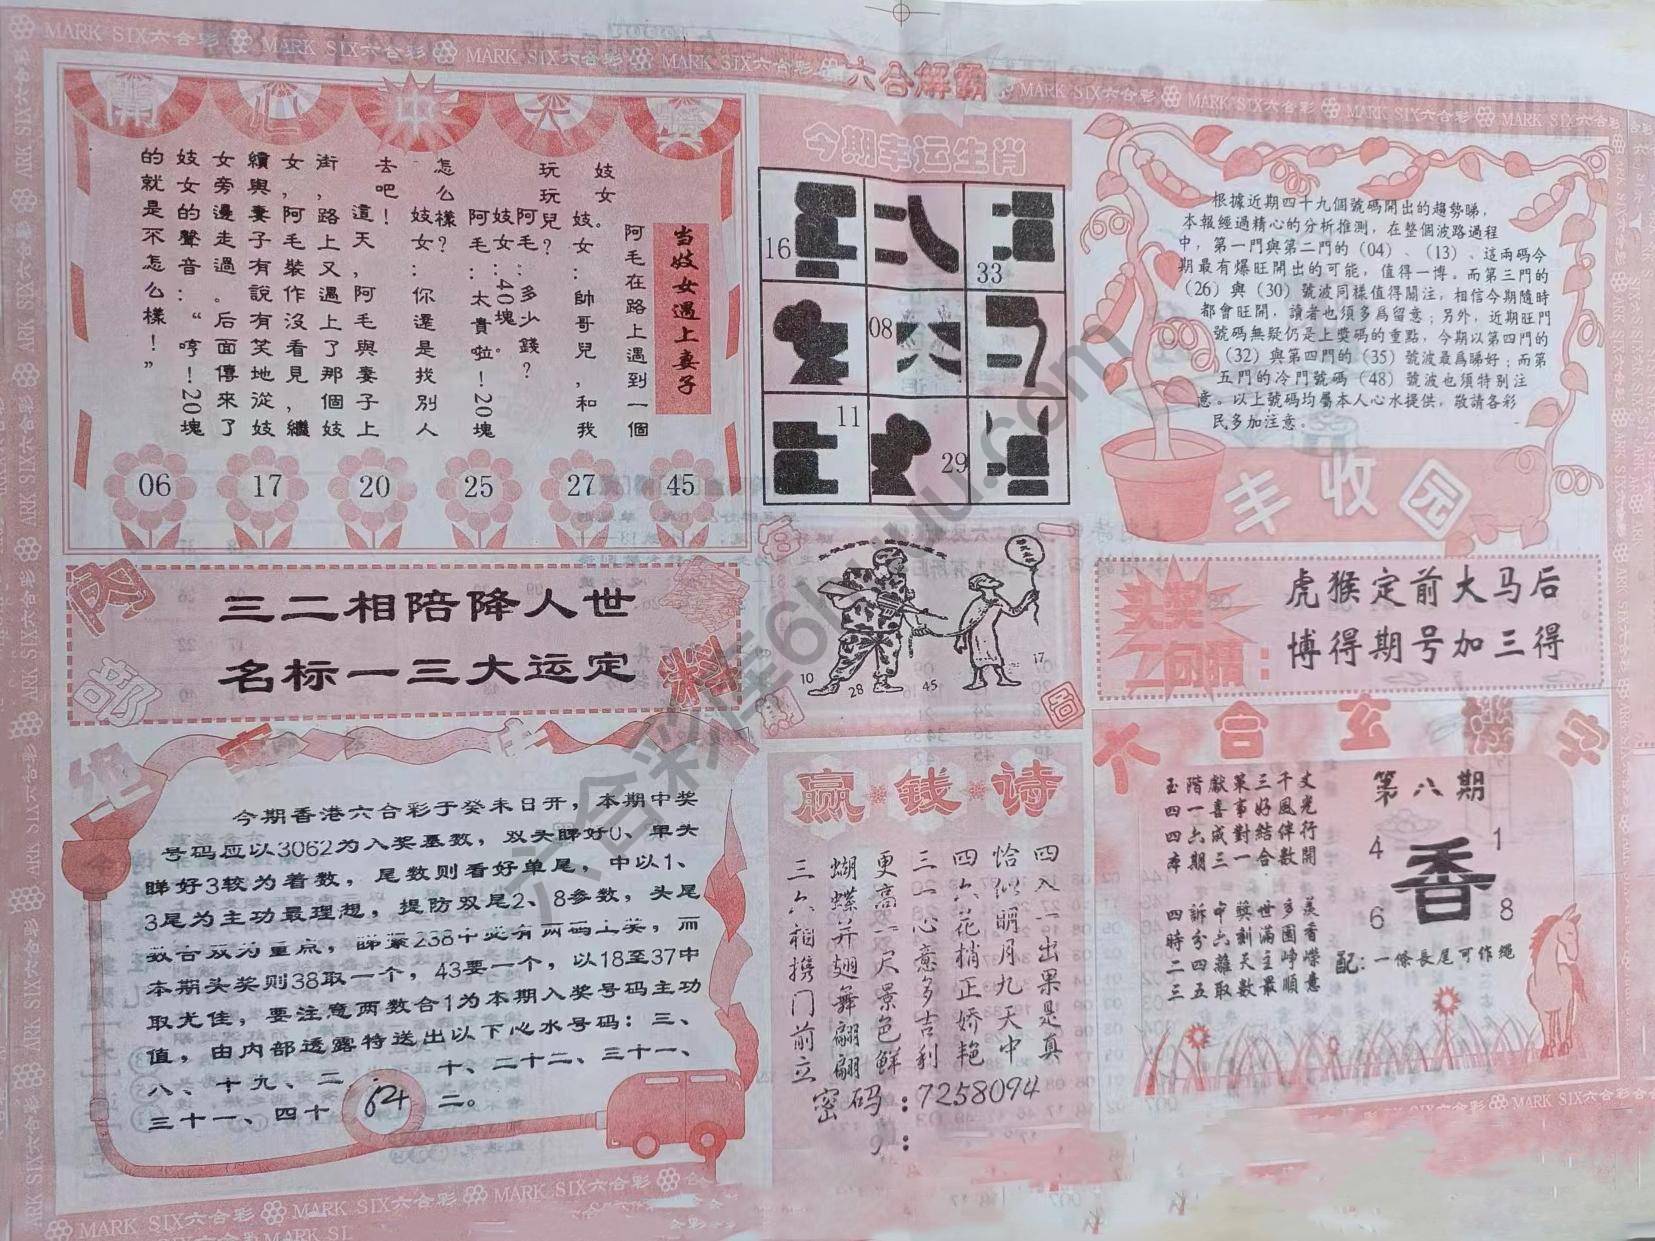 MARK SIX六合彩 MARK SIX六合彩 MARK SIX六合彩 MARK SIX六合彩
六合解霸
MARK SIX六合彩 MARK SIX六合彩 MARK SIX六合彩
開心中大獎
当妓女遇上妻子
阿毛在路上遇到一個
妓女。
妓女:帥哥兒,和我
玩玩兒?
阿毛:多少錢?
妓女:40塊。
阿毛:太貴啦!20塊
怎么樣?
妓女:你還是找別人
去吧!
這天,阿毛與妻子上
街,路上又遇上了那個妓
女,阿毛裝作沒看見,繼
續與妻子有說有笑地從妓
女旁邊走過。后面傳來了
妓女的聲音:“哼!20塊
的就是不怎么樣!”
06 17 20 25 27 45
今期幸运生肖
16
33
08
11
29
根據近期四十九個號碼開出的趨勢睇,
本報經過精心的分析推測,在整個波路過程
中,第一門與第二門的(04)、(13)、這兩碼今
期最有爆旺開出的可能,值得一博。而第三門的
(26)與(30)號波同樣值得關注,相信今期隨時
都會旺開,讀者也須多爲留意;另外,近期旺門
號碼無疑仍是上獎碼的重點,今期以第四門的
(32)與第四門的(35)號波最爲睇好;而第
五門的冷門號碼(48)號波也須特別注
意。以上號碼均屬本人心水提供,敬請各彩
民多加注意。
丰收园
内部
三二相陪降人世
名标一三大运定
10 28 45 17
头奖
二句睛:
虎猴定前大马后
博得期号加三得
今期香港六合彩于癸未日开,本期中奖
号码应以3062为入奖基数,双头睇好0、单头
睇好3较为着数,尾数则看好单尾,中以1、
3尾为主功最理想,提防双尾2、8参数,头尾
数合双为重点,睇紧238中必有两码上奖,而
本期头奖则38取一个,43要一个,以18至37中
取尤佳,要注意两数合1为本期入奖号码主功
值,由内部透露特送出以下心水号码:三、
八、十九、二十、二十二、三十一、
三十一、四十二。
赢钱诗
四入一出果是真
恰似明月九天中
四六花梢正娇艳
三一心意多吉利
更高一尺景色鲜
蝴蝶并翅舞翩翩
三六相携门前立
密码:7258094
六合玄機字
玉階獻策三千丈
四一喜事好風光
四六成對結伴行
本期三一合數開
四訴中獎世多美
時分六剎滿園香
二四離天主崢嶸
三五取數最順意
第八期
4 1
香
6 8
配:一條長尾可作繩
MARK SIX六合彩 MARK SIX六合彩 MARK SIX六合彩
六合彩库6huu.com